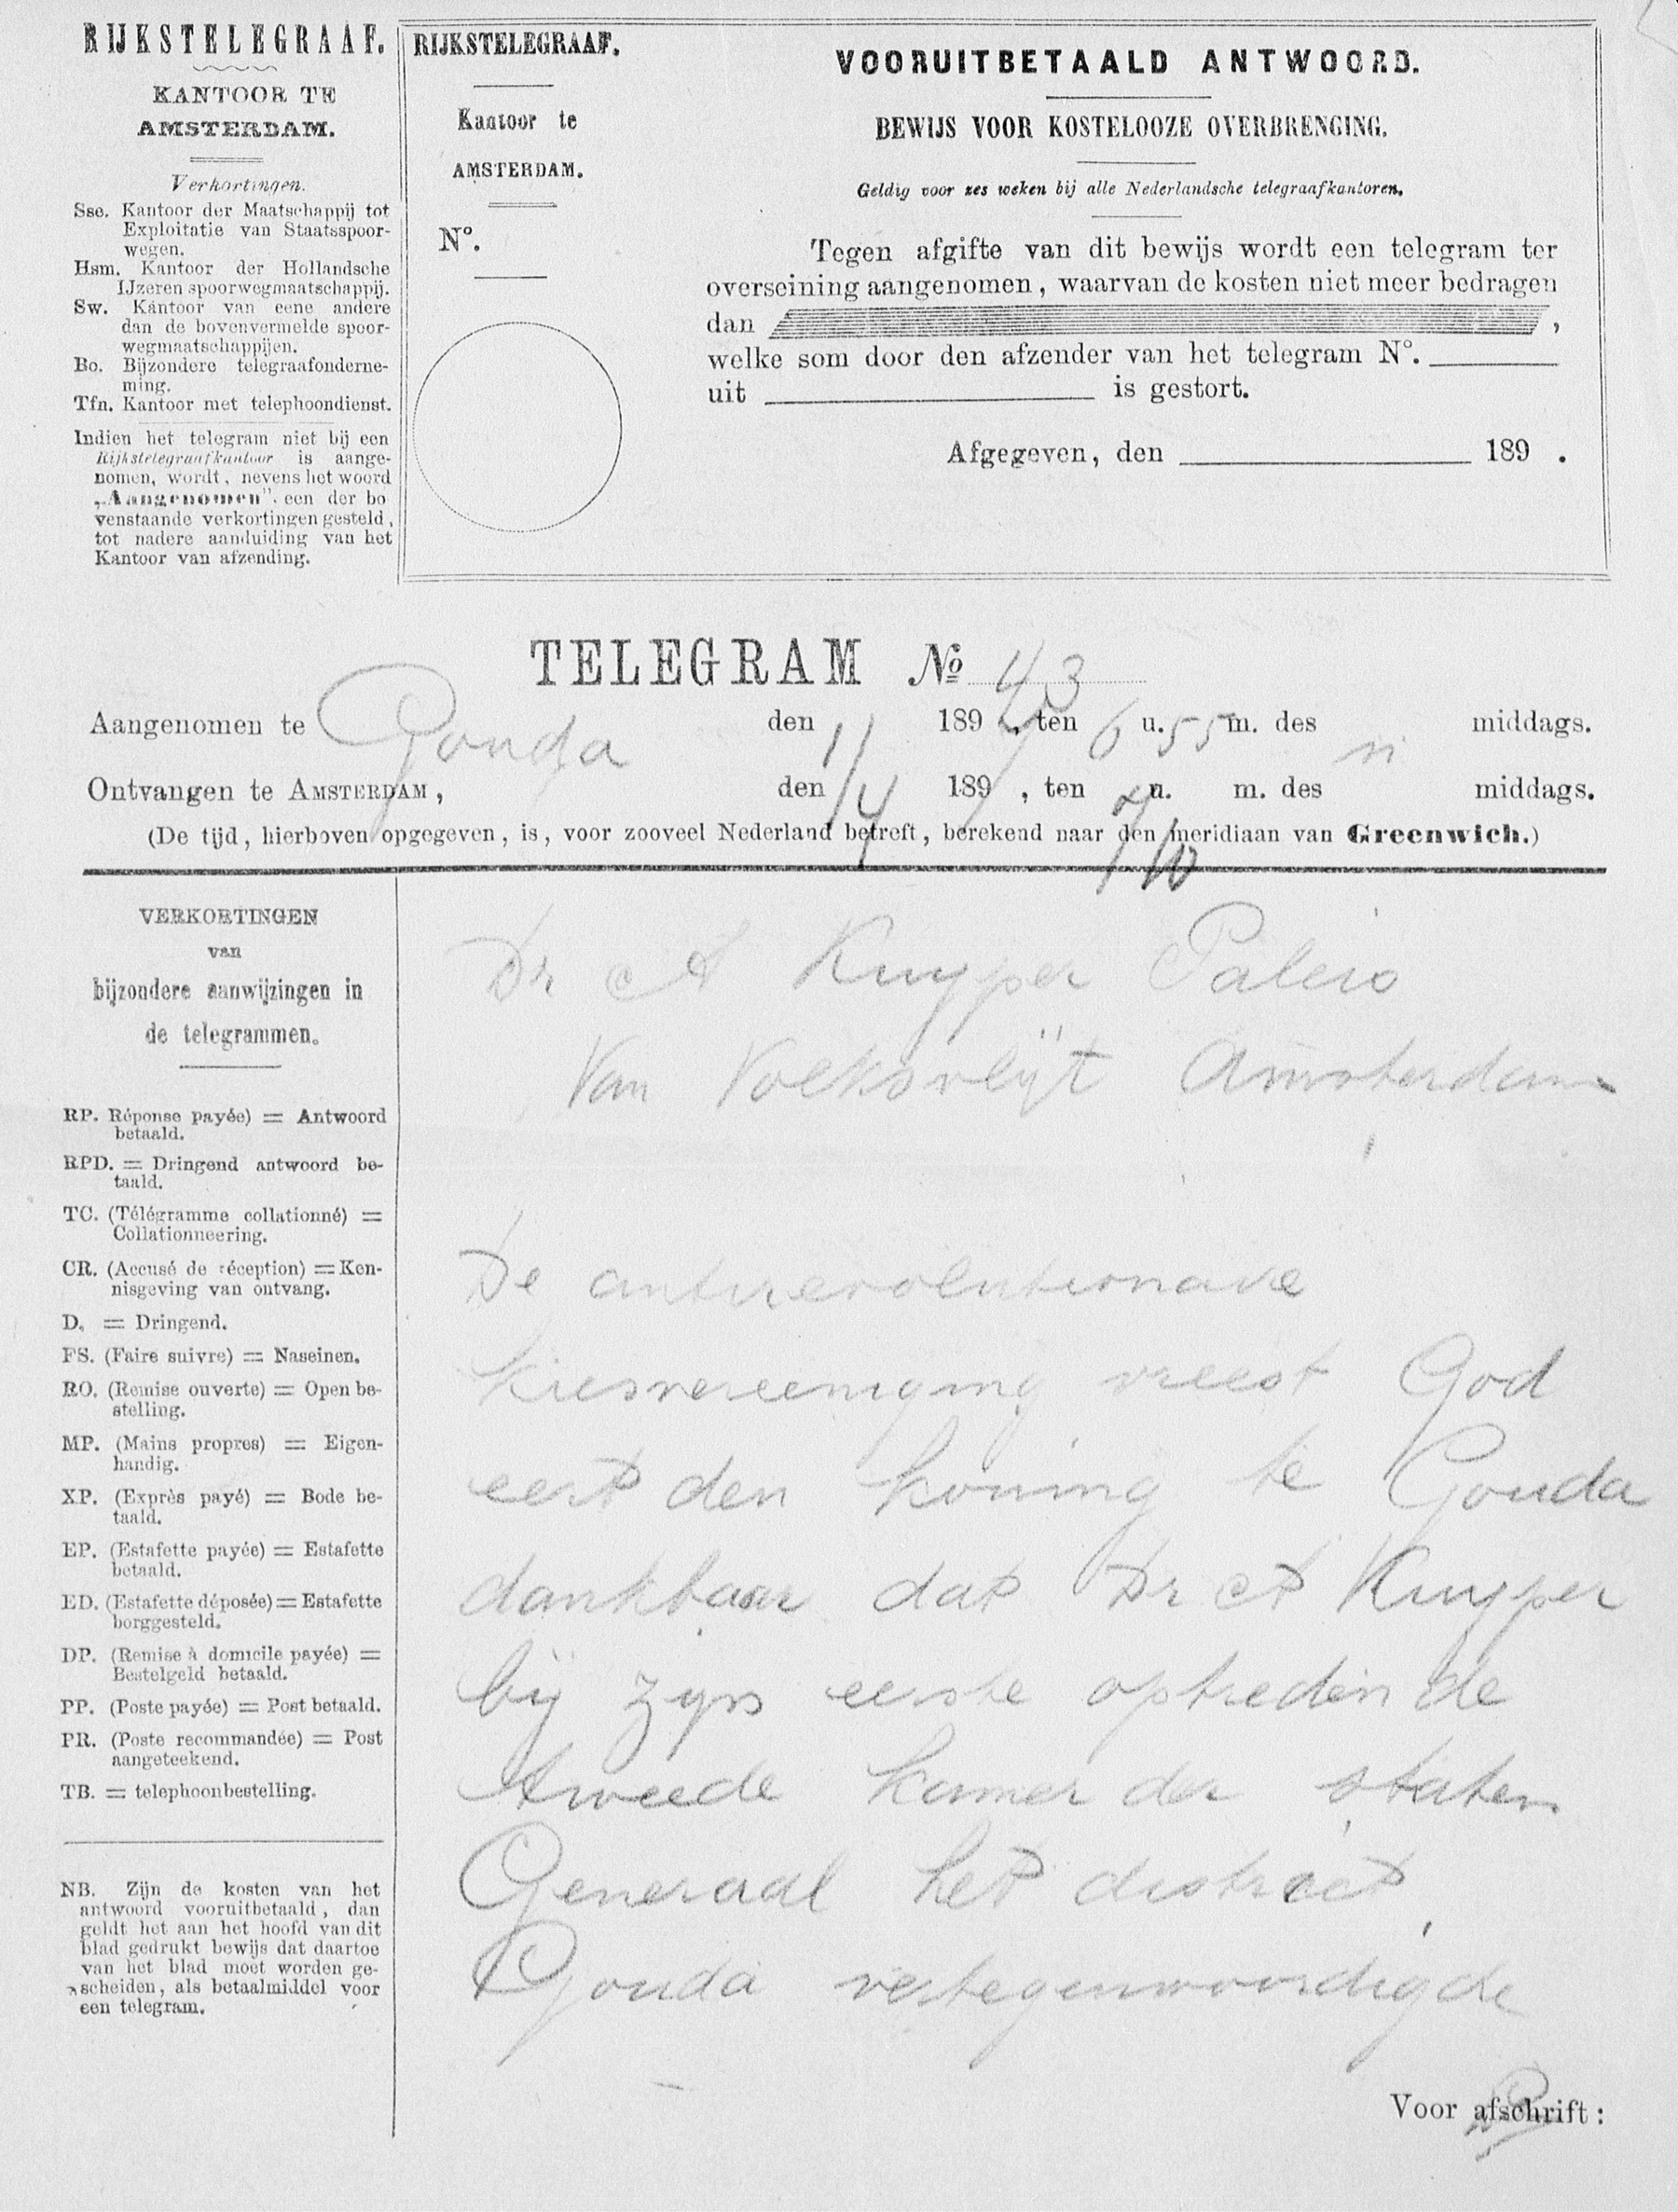 RIJKSTELEGRAAF.
KANTOOR TE
AMSTERDAM.
Verkortingen.
Sse. Kantoor der Maatschappij tot
Exploitatie van Staatsspoor-
wegen.
Hsm. Kantoor der Hollandsche
IJzeren spoorwegmaatschappij.
Sw. Kantoor van eene andere
dan de bovenvermelde spoor-
wegmaatschappijen.
Bo. Bijzondere telegraafonderne-
ming.
Tfn. Kantoor met telephoondienst.
Indien het telegram niet bij een
Rijkstelegraafkantoor is aange-
nomen, wordt, nevens het woord
„Aangenomen", een der bo
venstaande verkortingen gesteld,
tot nadere aanduiding van het
Kantoor van afzending.
RIJKSTELEGRAAF.
Kantoor te
AMSTERDAM.
N°.
VOORUITBETAALD ANTWOORD.
BEWIJS VOOR KOSTELOOZE OVERBRENGING.
Geldig voor zes weken bij alle Nederlandsche telegraafkantoren.
Tegen afgifte van dit bewijs wordt een telegram ter
overseining aangenomen, waarvan de kosten niet meer bedragen
dan ,
welke som door den afzender van het telegram N°.
uit is gestort.
Afgegeven, den 189 .
TELEGRAM No 43
Aangenomen te Gouda den 11/4 189 , ten 6 u. 55 m. des n middags.
Ontvangen te AMSTERDAM, den 189 , ten 7 u. 10 m. des middags.
(De tijd, hierboven opgegeven, is, voor zooveel Nederland betreft, berekend naar den meridiaan van Greenwich.)
VERKORTINGEN
van
bijzondere aanwijzingen in
de telegrammen.
RP. Réponse payée) = Antwoord
betaald.
RPD. = Dringend antwoord be-
taald.
TC. (Télégramme collationné) =
Collationneering.
CR. (Accusé de réception) = Ken-
nisgeving van ontvang.
D. = Dringend.
FS. (Faire suivre) = Naseinen.
RO. (Remise ouverte) = Open be-
stelling.
MP. (Mains propres) = Eigen-
handig.
XP. (Exprès payé) = Bode be-
taald.
EP. (Estafette payée) = Estafette
betaald.
ED. (Estafette déposée) = Estafette
borggesteld.
DP. (Remise à domicile payée) =
Bestelgeld betaald.
PP. (Poste payée) = Post betaald.
PR. (Poste recommandée) = Post
aangeteekend.
TB. = telephoonbestelling.
NB. Zijn de kosten van het
antwoord vooruitbetaald, dan
geldt het aan het hoofd van dit
blad gedrukt bewijs dat daartoe
van het blad moet worden ge-
scheiden, als betaalmiddel voor
een telegram.
Dr A Kuyper Paleis
Van Volksvlijt Amsterdam
De antirevolutionaire
kiesvereeniging vreest God
eert den koning te Gouda
dankbaar dat Dr A Kuyper
bij zijn eerste optreden de
tweede kamer der staten
Generaal het district
Gouda vertegenwoordigde
Voor afschrift: